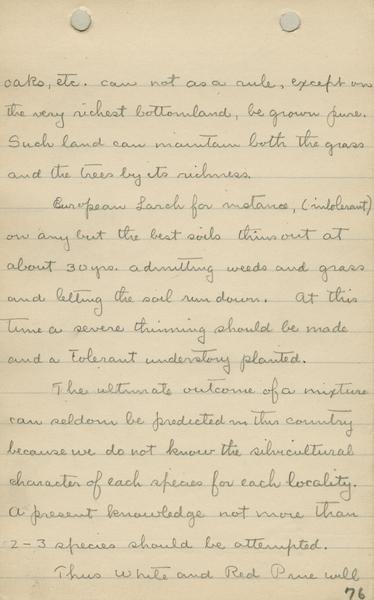 oaks, etc. can not as a rule, except on
the very richest bottomland, be grown pure.
Such land can maintain both the grass
and the trees by its richness.
European Larch for instance, (intolerant)
on any but the best soils thins out at
about 30 yrs. admitting weeds and grass
and letting the soil run down. At this
time a severe thinning should be made
and a Tolerant understory planted.
The ultimate outcome of a mixture
can seldom be predicted in this country
because we do not know the silvicultural
character of each species for each locality.
A present knowledge not more than
2-3 species should be attempted.
Thus White and Red Pine will
76